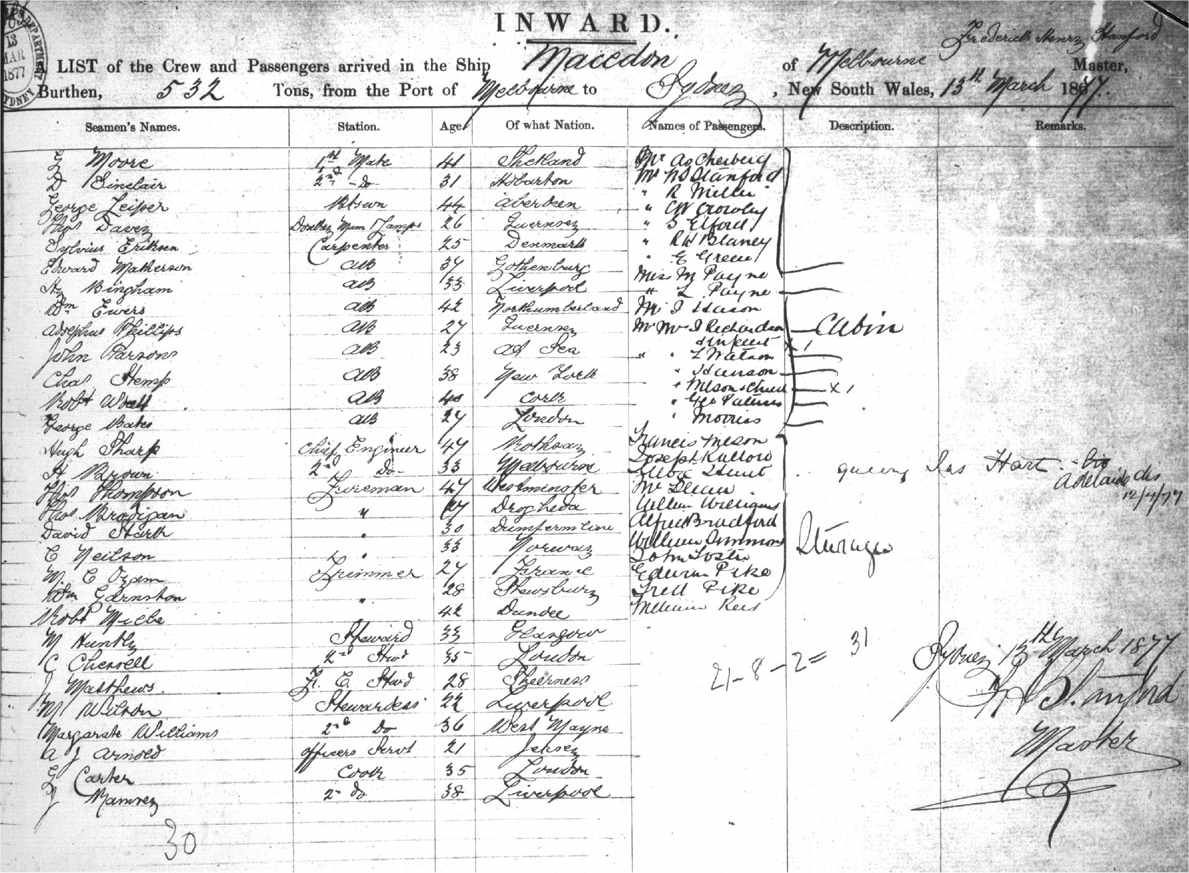 INWARD.
13
MAR
1877
DEPARTMENT
SYDNEY
Frederick Henry Stanford
LIST of the Crew and Passengers arrived in the Ship Macedon of Melbourne Master,
Burthen, 532 Tons, from the Port of Melbourne to Sydney, New South Wales, 13th March 1877.
Seamen's Names. Station. Age Of what Nation. Names of Passengers. Description. Remarks.
Moore 1st Mate 41 Shetland Mr
D Sinclair 2nd Do 31 Hobarton Mr Stanford
George Leiper Btswn 44 Aberdeen " R Miller
Thos Davey Lamps 26 Guernsey " CW Crowley
Sylvius Eriksen Carpenter 25 Denmark " S Elford
Edward Matherson AB 37 Gothenburg " RH Blaney
Hy Bingham AB 33 Liverpool " E Green
Wm Ewers AB 42 Northumberland Miss M Payne
Adolphus Phillips AB 27 Guernsey " L Payne
John Parsons AB 23 At Sea Mr J
Chas Hemp AB 38 New York Mr Mrs J Richardson Cabin
Robt AB 40 Cork & Infant x 1
George Bates AB 27 London " " L Watson
Hugh Sharp Chief Engineer 47 Rothsay " Hanson
H Brown 2nd Do 33 Melbourne " x 1
Thos Thompson Fireman 47 Westminster " Geo
Thos Brodigan " Drogheda " Morris
David Stark " 30 Dumfermline Francis
C Neilson " 33 Norway Joseph
M C Ozam Trimmer 27 France Hunt query Jas Hart
Adelaide
12/4/77
Wm Garnston " 28 Shewsbury Mr
Robt Milbe " 42 Dundee William Williams
M Huntly Steward 33 Glasgow Alfred Bradford
C Cherrell 2nd Stwd 35 London William Simmons
J Matthews F. C. Stwd 28 Sheerness John Foster
M Wilson Stewardess Liverpool Edwin Pike
Margarate Williams 2nd Do 36 West Mayne Fred Pike
A J Arnold Officers Servt 21 Jersey William
Carter Cook 35 London
Ramsey 2nd do 38 Liverpool
Steerage
21-8-2= 31
Sydney 13th March 1877
F H Stanford
Master
30